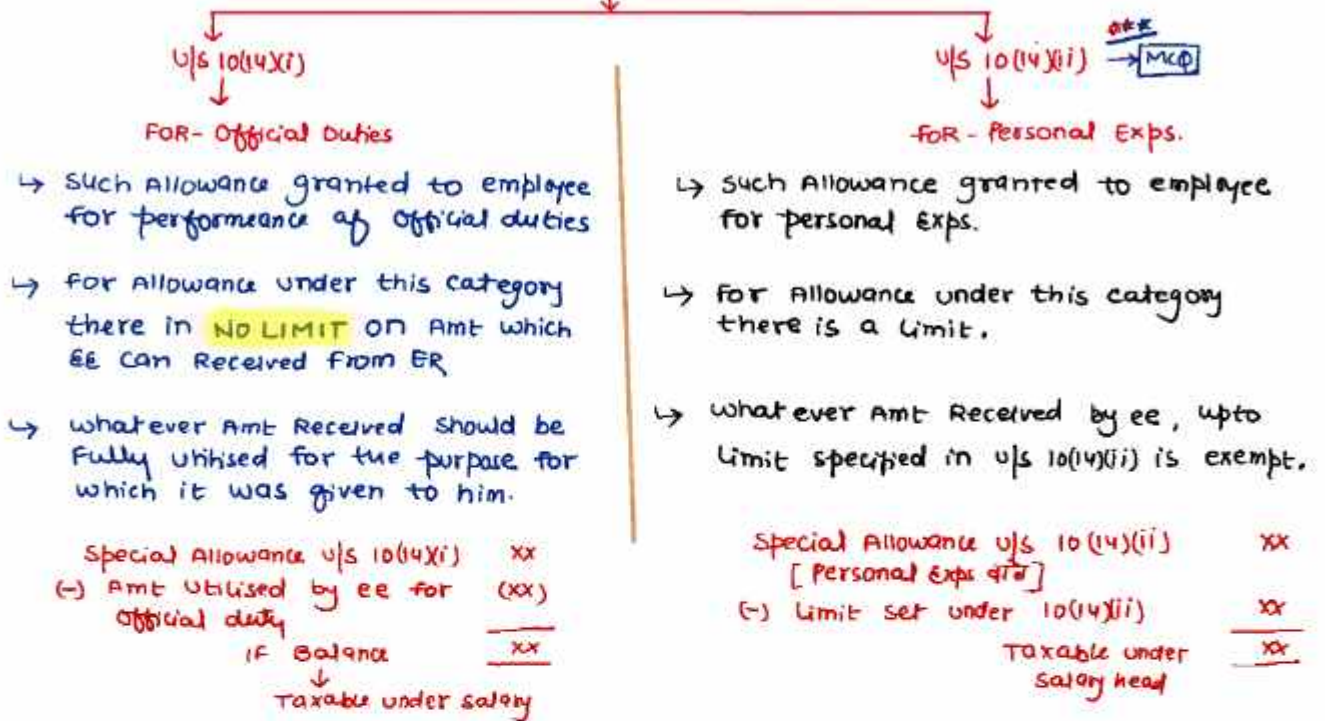 U/s 10(14)(i)
↓
FOR- Official Duties
↳ such Allowance granted to employee
for performeance of official duties
↳ for Allowance under this category
there in NO LIMIT on Amt which
EE can Received From ER
↳ whatever Amt Received should be
Fully utilised for the purpose for
which it was given to him.
Special Allowance u/s 10(14)(i) xx
(-) Amt Utilised by ee for (xx)
official duty
IF Balance xx
↓
Taxable under salary
***
U/s 10(14)(ii) → MCQ
↓
FOR - Personal Exps.
↳ such Allowance granted to employee
for personal Exps.
↳ for Allowance under this category
there is a limit.
↳ whatever Amt Received by ee, upto
limit specified in u/s 10(14)(ii) is exempt.
Special Allowance u/s 10(14)(ii) xx
[ Personal Exps वाले ]
(-) limit set under 10(14)(ii) xx
Taxable under xx
Salary head